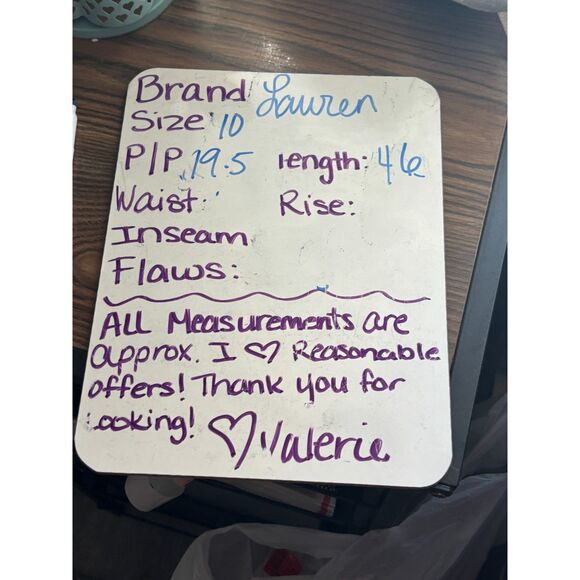 Brand Lauren
Size: 10
P/P 19.5 length: 46
Waist: Rise:
Inseam
Flaws:
ALL Measurements are
approx. I ♡ Reasonable
offers! Thank you for
Looking! ♡ Valerie